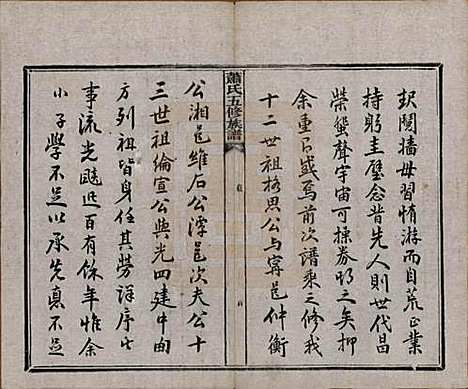 釁鬩牆毋習惰游而自荒正業
持躬圭璧念昔先人則世代昌
榮蜚聲宇宙可操券明之矣抑
余重有感焉前次譜乘之修我
十二世祖格思公与甯邑仲衡
蕭氏五修族譜
公湘邑維石公潭邑次夫公十
三世祖綸宣公與光四建中甸
方列祖皆身任其勞詳序先
事流光迅百有餘年惟余
小子學不足以承先德不足